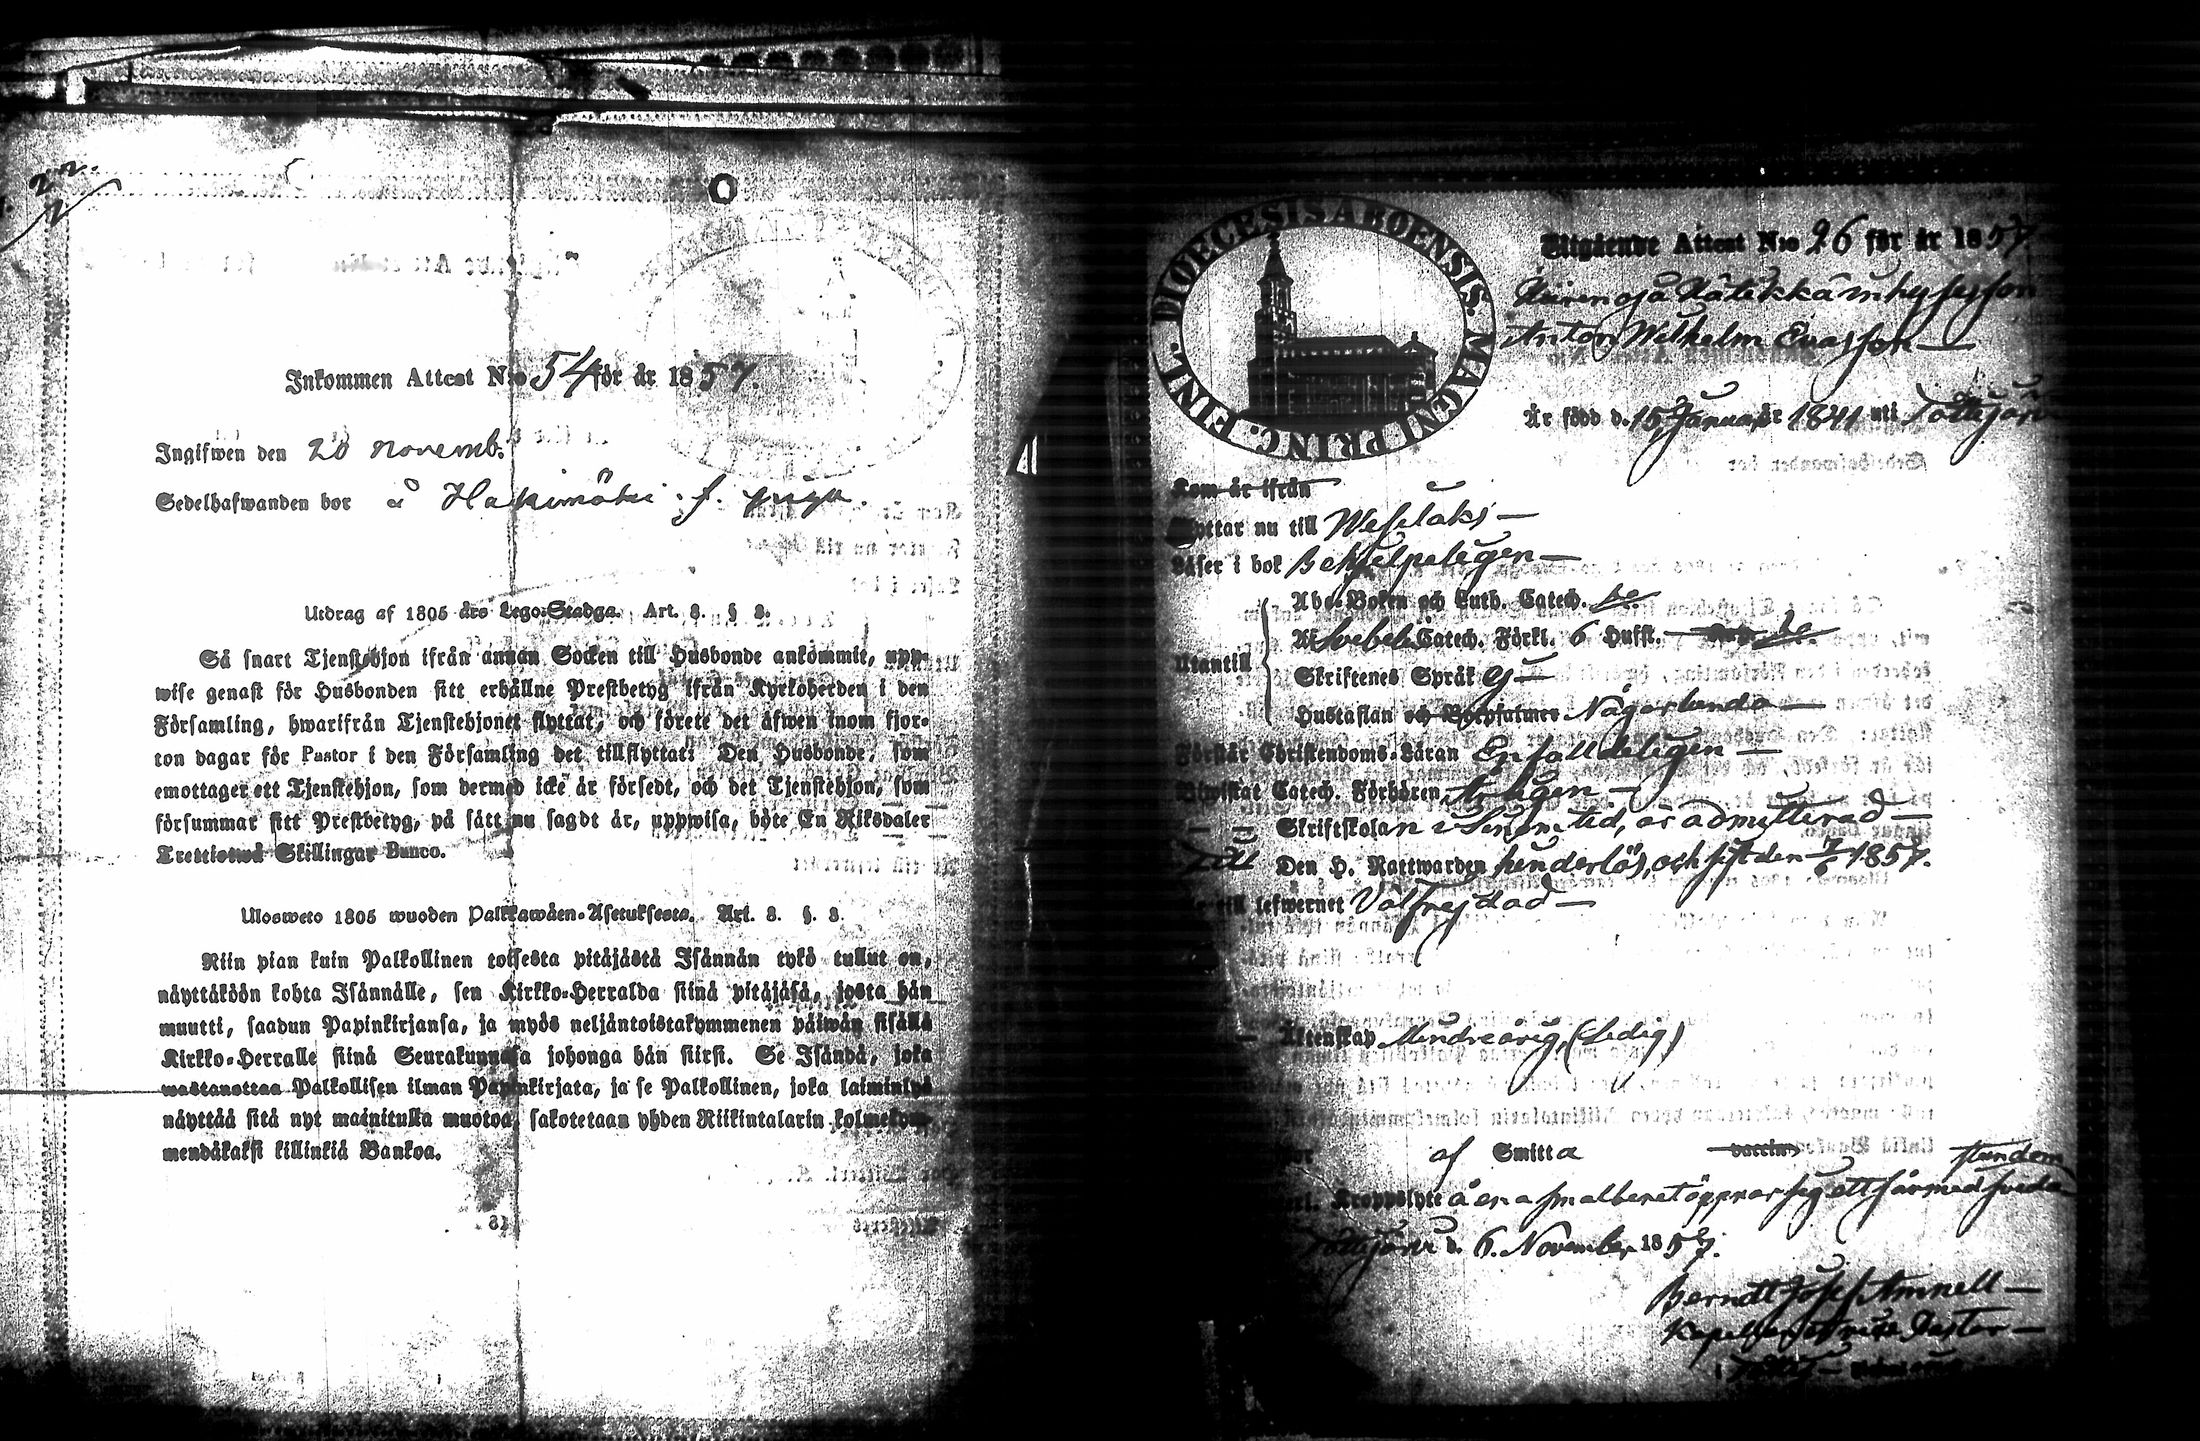 22.
Inkommen Attest N:o 54 för år 1857.
Ingifwen den 28 novemb.
Sedelhafwanden bor å Hakimäki
Utdrag af 1805 års Lego-Stadga. Art. 8. § 8.
Så snart Tjenstehjon ifrån annan Socken till Husbonde ankommit, upp-
wise genast för Husbonden sitt erhållne Prestbetyg ifrån Kyrkoherden i den
Församling, hwarifrån Tjenstehjonet flyttat, och förete det äfwen inom fjor-
ton dagar för Pastor i den Församling det tillflyttat. Den Husbonde, som
emottager ett Tjenstehjon, som dermed icke är försedt, och det Tjenstehjon, som
försummar sitt Prestbetyg, på sätt nu sagdt är, uppwisa, böte En Riksdaler
Trettiotwå Skillingar Banco.
Uloswето 1805 wuoden Palkkawäen-Asetuksesta. Art. 8. §. 8.
Niin pian kuin Palkollinen toisesta pitäjästä Isännän tykö tullut on,
näyttäköön kohta Isännälle, sen Kirkko-Herralda siinä pitäjäsä, josta hän
muutti, saadun Papinkirjansa, ja myös neljäntoistakymmenen päiwän sisällä
Kirkko-Herralle siinä Seurakunnasa johonga hän siirsi. Se Isändä, joka
wastanottaa Palkollisen ilman Papinkirjata, ja se Palkollinen, joka laiminlyö
näyttää sitä nyt mainitulla muotoa, sakotetaan yhden Riikintalarin kolmekym-
mendäkaksi killinkiä Bankoa.
DIOECESIS ABOENSIS. MAGNI PRINC. FINL.
Utgående Attest N:o 26 för år 1857
Anton Wilhelm Evasson
Är född d. 15 Januar är 1841 uti Töttjärvi
Kom år ifrån
Flyttar nu till Wesilaks
Läser i bok Behjelpeligen
Utantill
Abc-Boken och Luth. Catech.
Svebel. Catech. Förkl. 6 Hufst.
Skriftenes Språk Ej
Hustaflan och Botpsalmer Någorlunda
Förstår Christendoms-Läran Enfalldeligen
Bewistat Catech. Förhören Årligen
Skriftskolan i sinom tid, är admitterad
till Den H. Nattwarden hinderlös, och sist den 7/6 1857.
till lefwernet Välfrejdad
Äktenskap Mindreårig, (Ledig)
af Smitta vaccin stundom
Kroppslyte å ena smalbenet öppnar sig ett sår med sveda
Töttjärvi d. 6. November 1857.
Berndt Josef Amnell
Kapellan